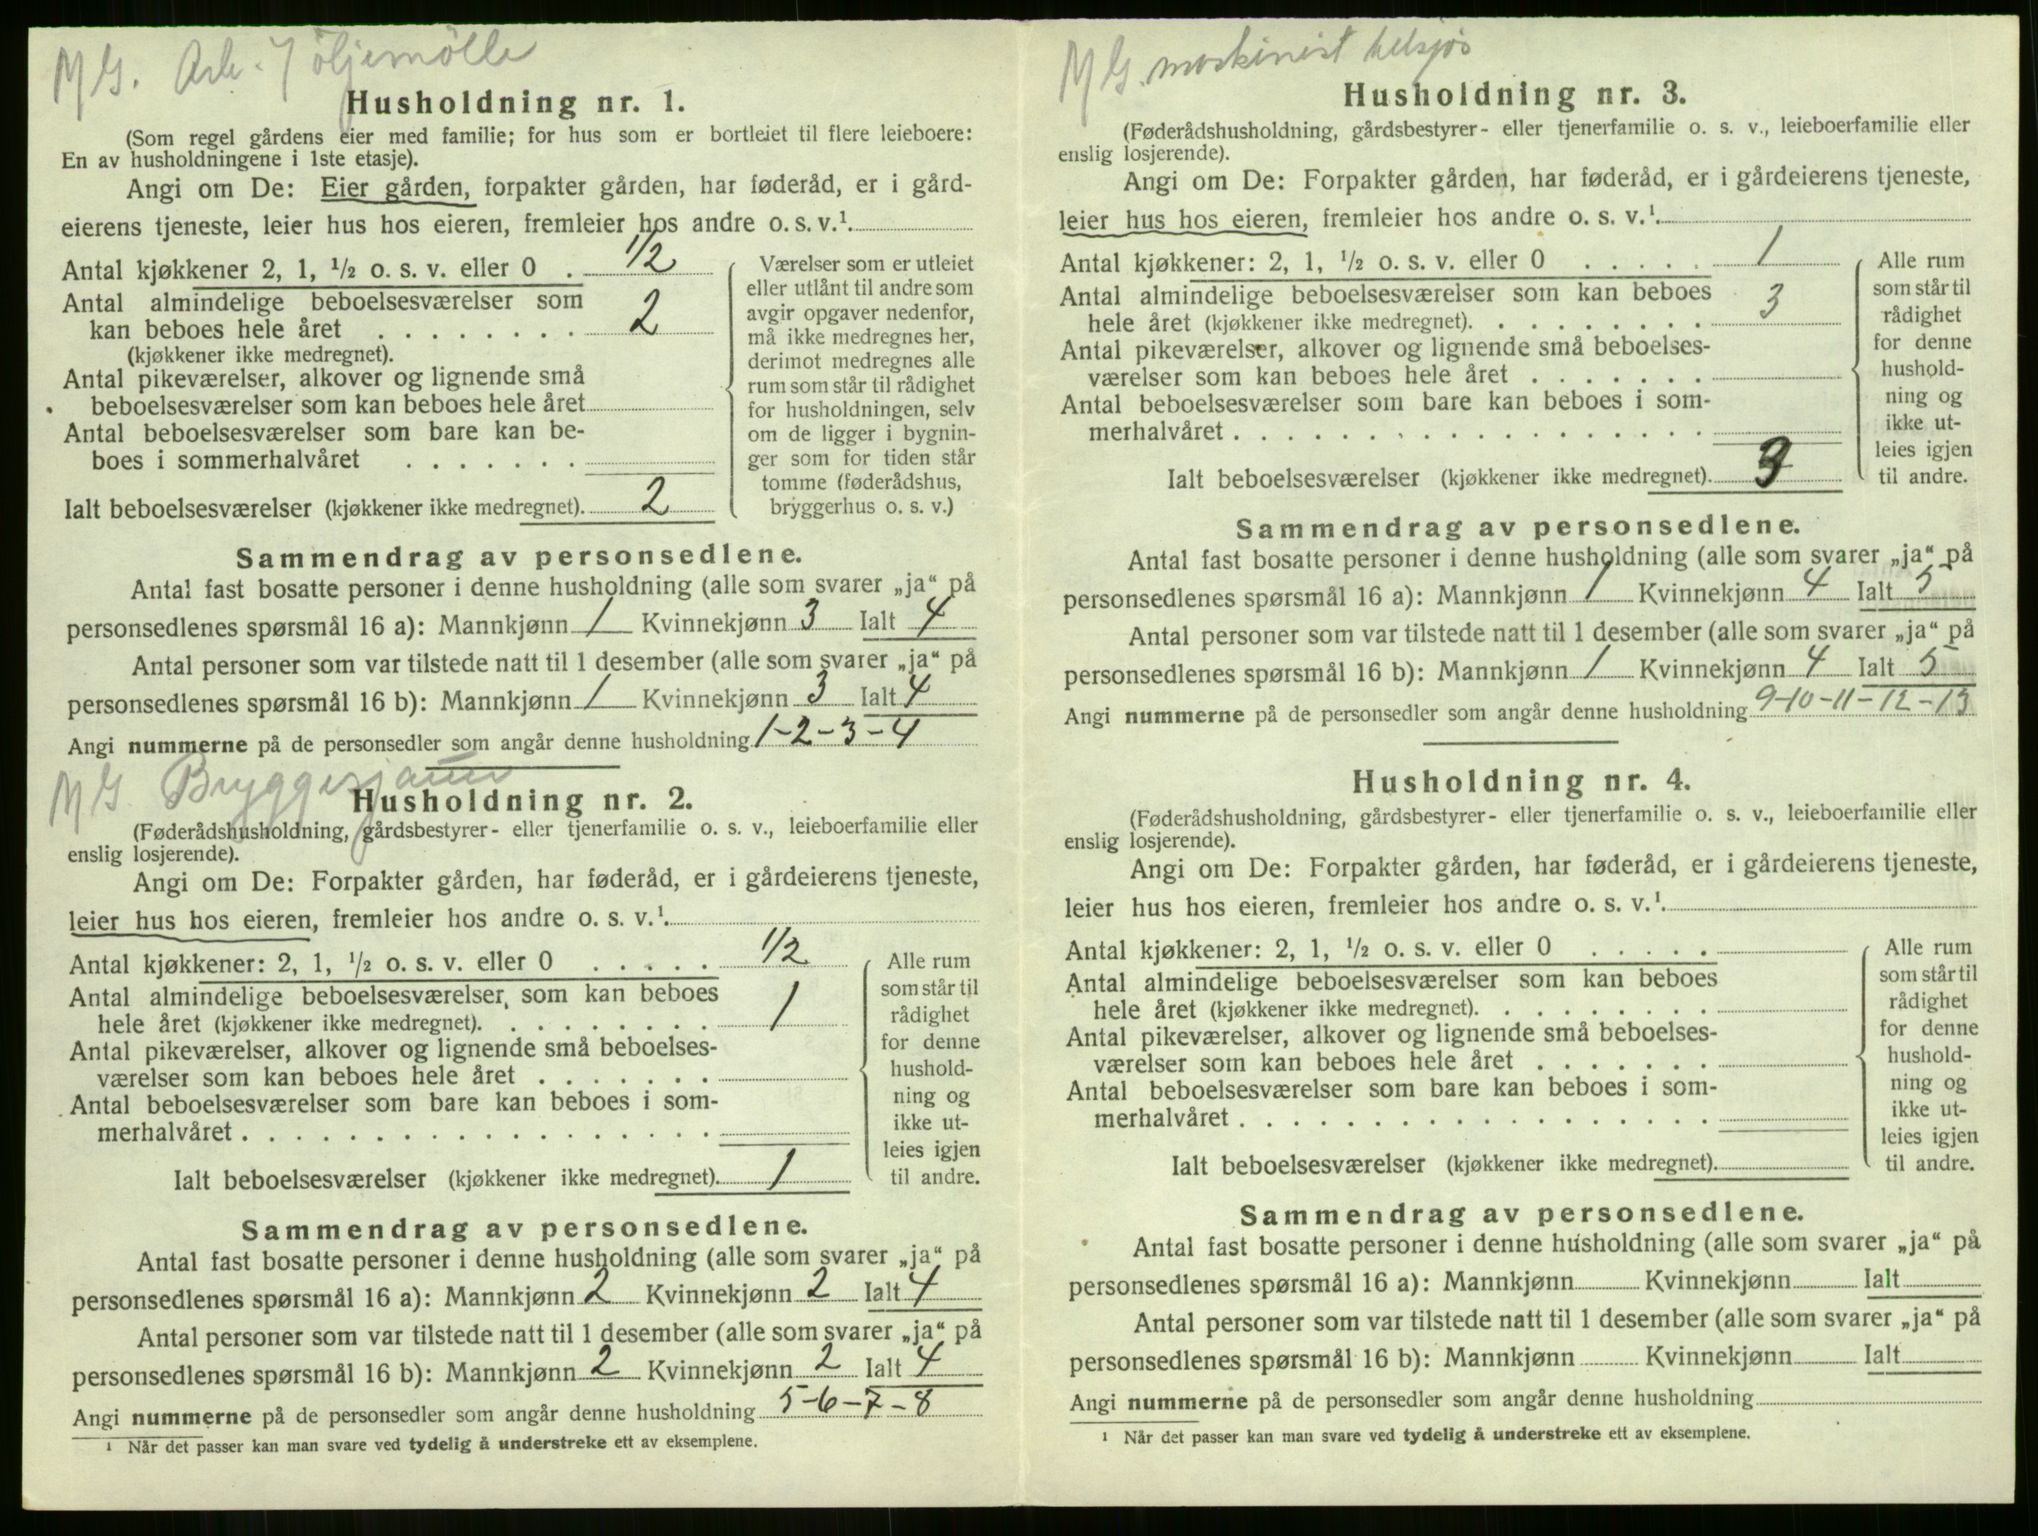 M G. Arb. i oljemølle
Husholdning nr. 1.
(Som regel gårdens eier med familie; for hus som er bortleiet til flere leieboere:
En av husholdningene i 1ste etasje).
Angi om De: Eier gården, forpakter gården, har føderåd, er i gård-
eierens tjeneste, leier hus hos eieren, fremleier hos andre o. s. v.¹
Antal kjøkkener 2, 1, ½ o. s. v. eller 0 . 1/2
Antal almindelige beboelsesværelser som
kan beboes hele året . . . . . . . 2
(kjøkkener ikke medregnet).
Antal pikeværelser, alkover og lignende små
beboelsesværelser som kan beboes hele året
Antal beboelsesværelser som bare kan be-
boes i sommerhalvåret . . . . . . .
Ialt beboelsesværelser (kjøkkener ikke medregnet). 2
Værelser som er utleiet
eller utlånt til andre som
avgir opgaver nedenfor,
må ikke medregnes her,
derimot medregnes alle
rum som står til rådighet
for husholdningen, selv
om de ligger i bygnin-
ger som for tiden står
tomme (føderådshus,
bryggerhus o. s. v.)
Sammendrag av personsedlene.
Antal fast bosatte personer i denne husholdning (alle som svarer „ja“ på
personsedlenes spørsmål 16 a): Mannkjønn 1 Kvinnekjønn 3 Ialt 4
Antal personer som var tilstede natt til 1 desember (alle som svarer „ja“ på
personsedlenes spørsmål 16 b): Mannkjønn 1 Kvinnekjønn 3 Ialt 4
Angi nummerne på de personsedler som angår denne husholdning 1-2-3-4
M G. Bryggesjauer
Husholdning nr. 2.
(Føderådshusholdning, gårdsbestyrer- eller tjenerfamilie o. s. v., leieboerfamilie eller
enslig losjerende).
Angi om De: Forpakter gården, har føderåd, er i gårdeierens tjeneste,
leier hus hos eieren, fremleier hos andre o. s. v.¹
Antal kjøkkener: 2, 1, ½ o. s. v. eller 0 . . . . . 1/2
Antal almindelige beboelsesværelser som kan beboes
hele året (kjøkkener ikke medregnet). . . . . . . . . 1
Antal pikeværelser, alkover og lignende små beboelses-
værelser som kan beboes hele året . . . . . . .
Antal beboelsesværelser som bare kan beboes i som-
merhalvåret . . . . . . . . . . . . . . . . . .
Ialt beboelsesværelser (kjøkkener ikke medregnet). 1
Alle rum
som står til
rådighet
for denne
hushold-
ning og
ikke ut-
leies igjen
til andre.
Sammendrag av personsedlene.
Antal fast bosatte personer i denne husholdning (alle som svarer „ja“ på
personsedlenes spørsmål 16 a): Mannkjønn 2 Kvinnekjønn 2 Ialt 4
Antal personer som var tilstede natt til 1 desember (alle som svarer „ja“ på
personsedlenes spørsmål 16 b): Mannkjønn 2 Kvinnekjønn 2 Ialt 4
Angi nummerne på de personsedler som angår denne husholdning 5-6-7-8
¹ Når det passer kan man svare ved tydelig å understreke ett av eksemplene.
M G. maskinist
Husholdning nr. 3.
(Føderådshusholdning, gårdsbestyrer- eller tjenerfamilie o. s. v., leieboerfamilie eller
enslig losjerende).
Angi om De: Forpakter gården, har føderåd, er i gårdeierens tjeneste,
leier hus hos eieren, fremleier hos andre o. s. v.¹
Antal kjøkkener: 2, 1, ½ o. s. v. eller 0 . . . . . 1
Antal almindelige beboelsesværelser som kan beboes
hele året (kjøkkener ikke medregnet). . . . . . . . . 3
Antal pikeværelser, alkover og lignende små beboelses-
værelser som kan beboes hele året . . . . . . .
Antal beboelsesværelser som bare kan beboes i som-
merhalvåret . . . . . . . . . . . . . . . . . .
Ialt beboelsesværelser (kjøkkener ikke medregnet). 3
Alle rum
som står til
rådighet
for denne
hushold-
ning og
ikke ut-
leies igjen
til andre.
Sammendrag av personsedlene.
Antal fast bosatte personer i denne husholdning (alle som svarer „ja“ på
personsedlenes spørsmål 16 a): Mannkjønn 1 Kvinnekjønn 4 Ialt 5
Antal personer som var tilstede natt til 1 desember (alle som svarer „ja“ på
personsedlenes spørsmål 16 b): Mannkjønn 1 Kvinnekjønn 4 Ialt 5
Angi nummerne på de personsedler som angår denne husholdning 9-10-11-12-13
Husholdning nr. 4.
(Føderådshusholdning, gårdsbestyrer- eller tjenerfamilie o. s. v., leieboerfamilie eller
enslig losjerende).
Angi om De: Forpakter gården, har føderåd, er i gårdeierens tjeneste,
leier hus hos eieren, fremleier hos andre o. s. v.¹
Antal kjøkkener: 2, 1, ½ o. s. v. eller 0 . . . . .
Antal almindelige beboelsesværelser som kan beboes
hele året (kjøkkener ikke medregnet). . . . . . . . .
Antal pikeværelser, alkover og lignende små beboelses-
værelser som kan beboes hele året . . . . . . .
Antal beboelsesværelser som bare kan beboes i som-
merhalvåret . . . . . . . . . . . . . . . . . .
Ialt beboelsesværelser (kjøkkener ikke medregnet).
Alle rum
som står til
rådighet
for denne
hushold-
ning og
ikke ut-
leies igjen
til andre.
Sammendrag av personsedlene.
Antal fast bosatte personer i denne husholdning (alle som svarer „ja“ på
personsedlenes spørsmål 16 a): Mannkjønn Kvinnekjønn Ialt
Antal personer som var tilstede natt til 1 desember (alle som svarer „ja“ på
personsedlenes spørsmål 16 b): Mannkjønn Kvinnekjønn Ialt
Angi nummerne på de personsedler som angår denne husholdning
¹ Når det passer kan man svare ved tydelig å understreke ett av eksemplene.